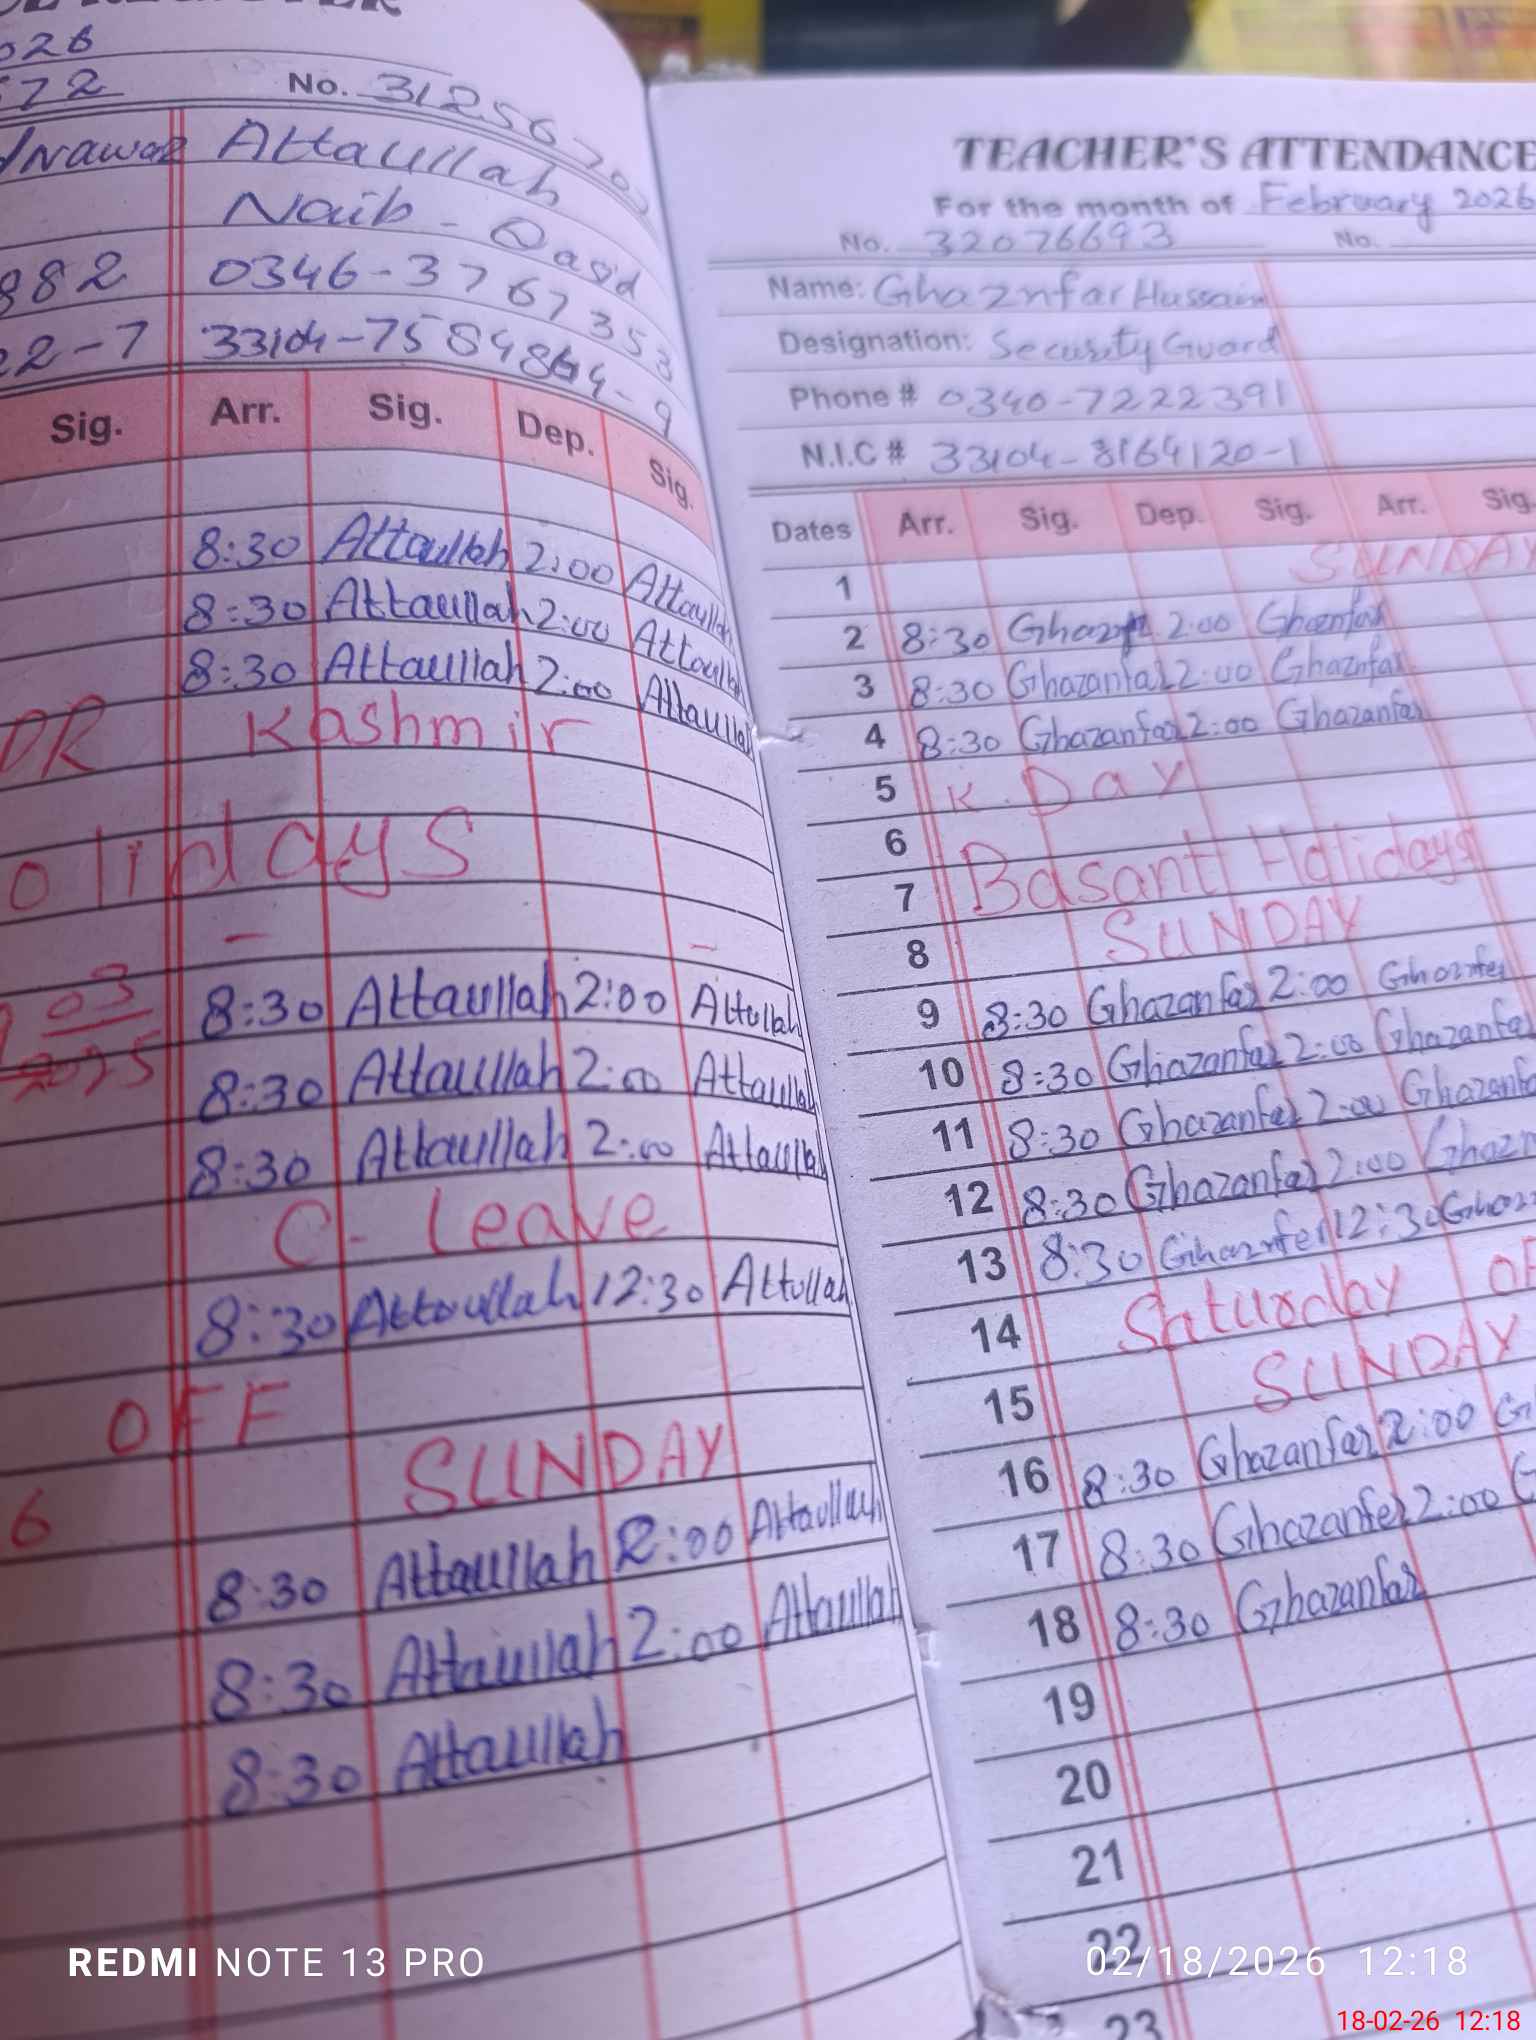 026
No. 3125670
Nawaz Attaullah
Naib - Qasid
982 0346-3767353
22-7 33104-7584864-9
Sig. Arr. Sig. Dep. Sig.
8:30 Attaullah 2:00 Attaullah
8:30 Attaullah 2:00 Attaullah
8:30 Attaullah 2:00 Attaullah
DR Kashmir
olidays
- -
03 8:30 Attaullah 2:00 Attullah
2025 8:30 Attaullah 2:00 Attaullah
8:30 Attaullah 2:00 Attaullah
C- Leave
8:30 Attaullah 12:30 Attullah
OFF
SUNDAY
6
8:30 Attaullah 2:00 Attaullah
8:30 Attaullah 2:00 Attaullah
8:30 Attaullah
TEACHER'S ATTENDANCE
For the month of February 2026
No. 32076693 No.
Name: Ghaznfar Hussain
Designation: Security Guard
Phone # 0340-7222391
N.I.C # 33104-8164120-1
Dates Arr. Sig. Dep. Sig. Arr. Sig
1 SUNDAY
2 8:30 2:00 Ghaznfar
3 8:30 Ghazanfar 2:00 Ghaznfar
4 8:30 Ghazanfar 2:00 Ghazanfar
5 K. Day
6
7 Basant Holidays
8 SUNDAY
9 8:30 Ghazanfar 2:00 Ghaznfer
10 8:30 Ghazanfar 2:00 Ghazanfa
11 8:30 Ghazanfar 2:00 Ghazanfa
12 8:30 Ghazanfar 2:00 Ghazn
13 8:30 Ghaznfer 12:30 Ghaz
14 Saturday OF
15 SUNDAY
16 8:30 Ghazanfar 2:00 G
17 8:30 Ghazanfer 2:00 G
18 8:30 Ghazanfar
19
20
21
22
23
REDMI NOTE 13 PRO
02/18/2026 12:18
18-02-26 12:18